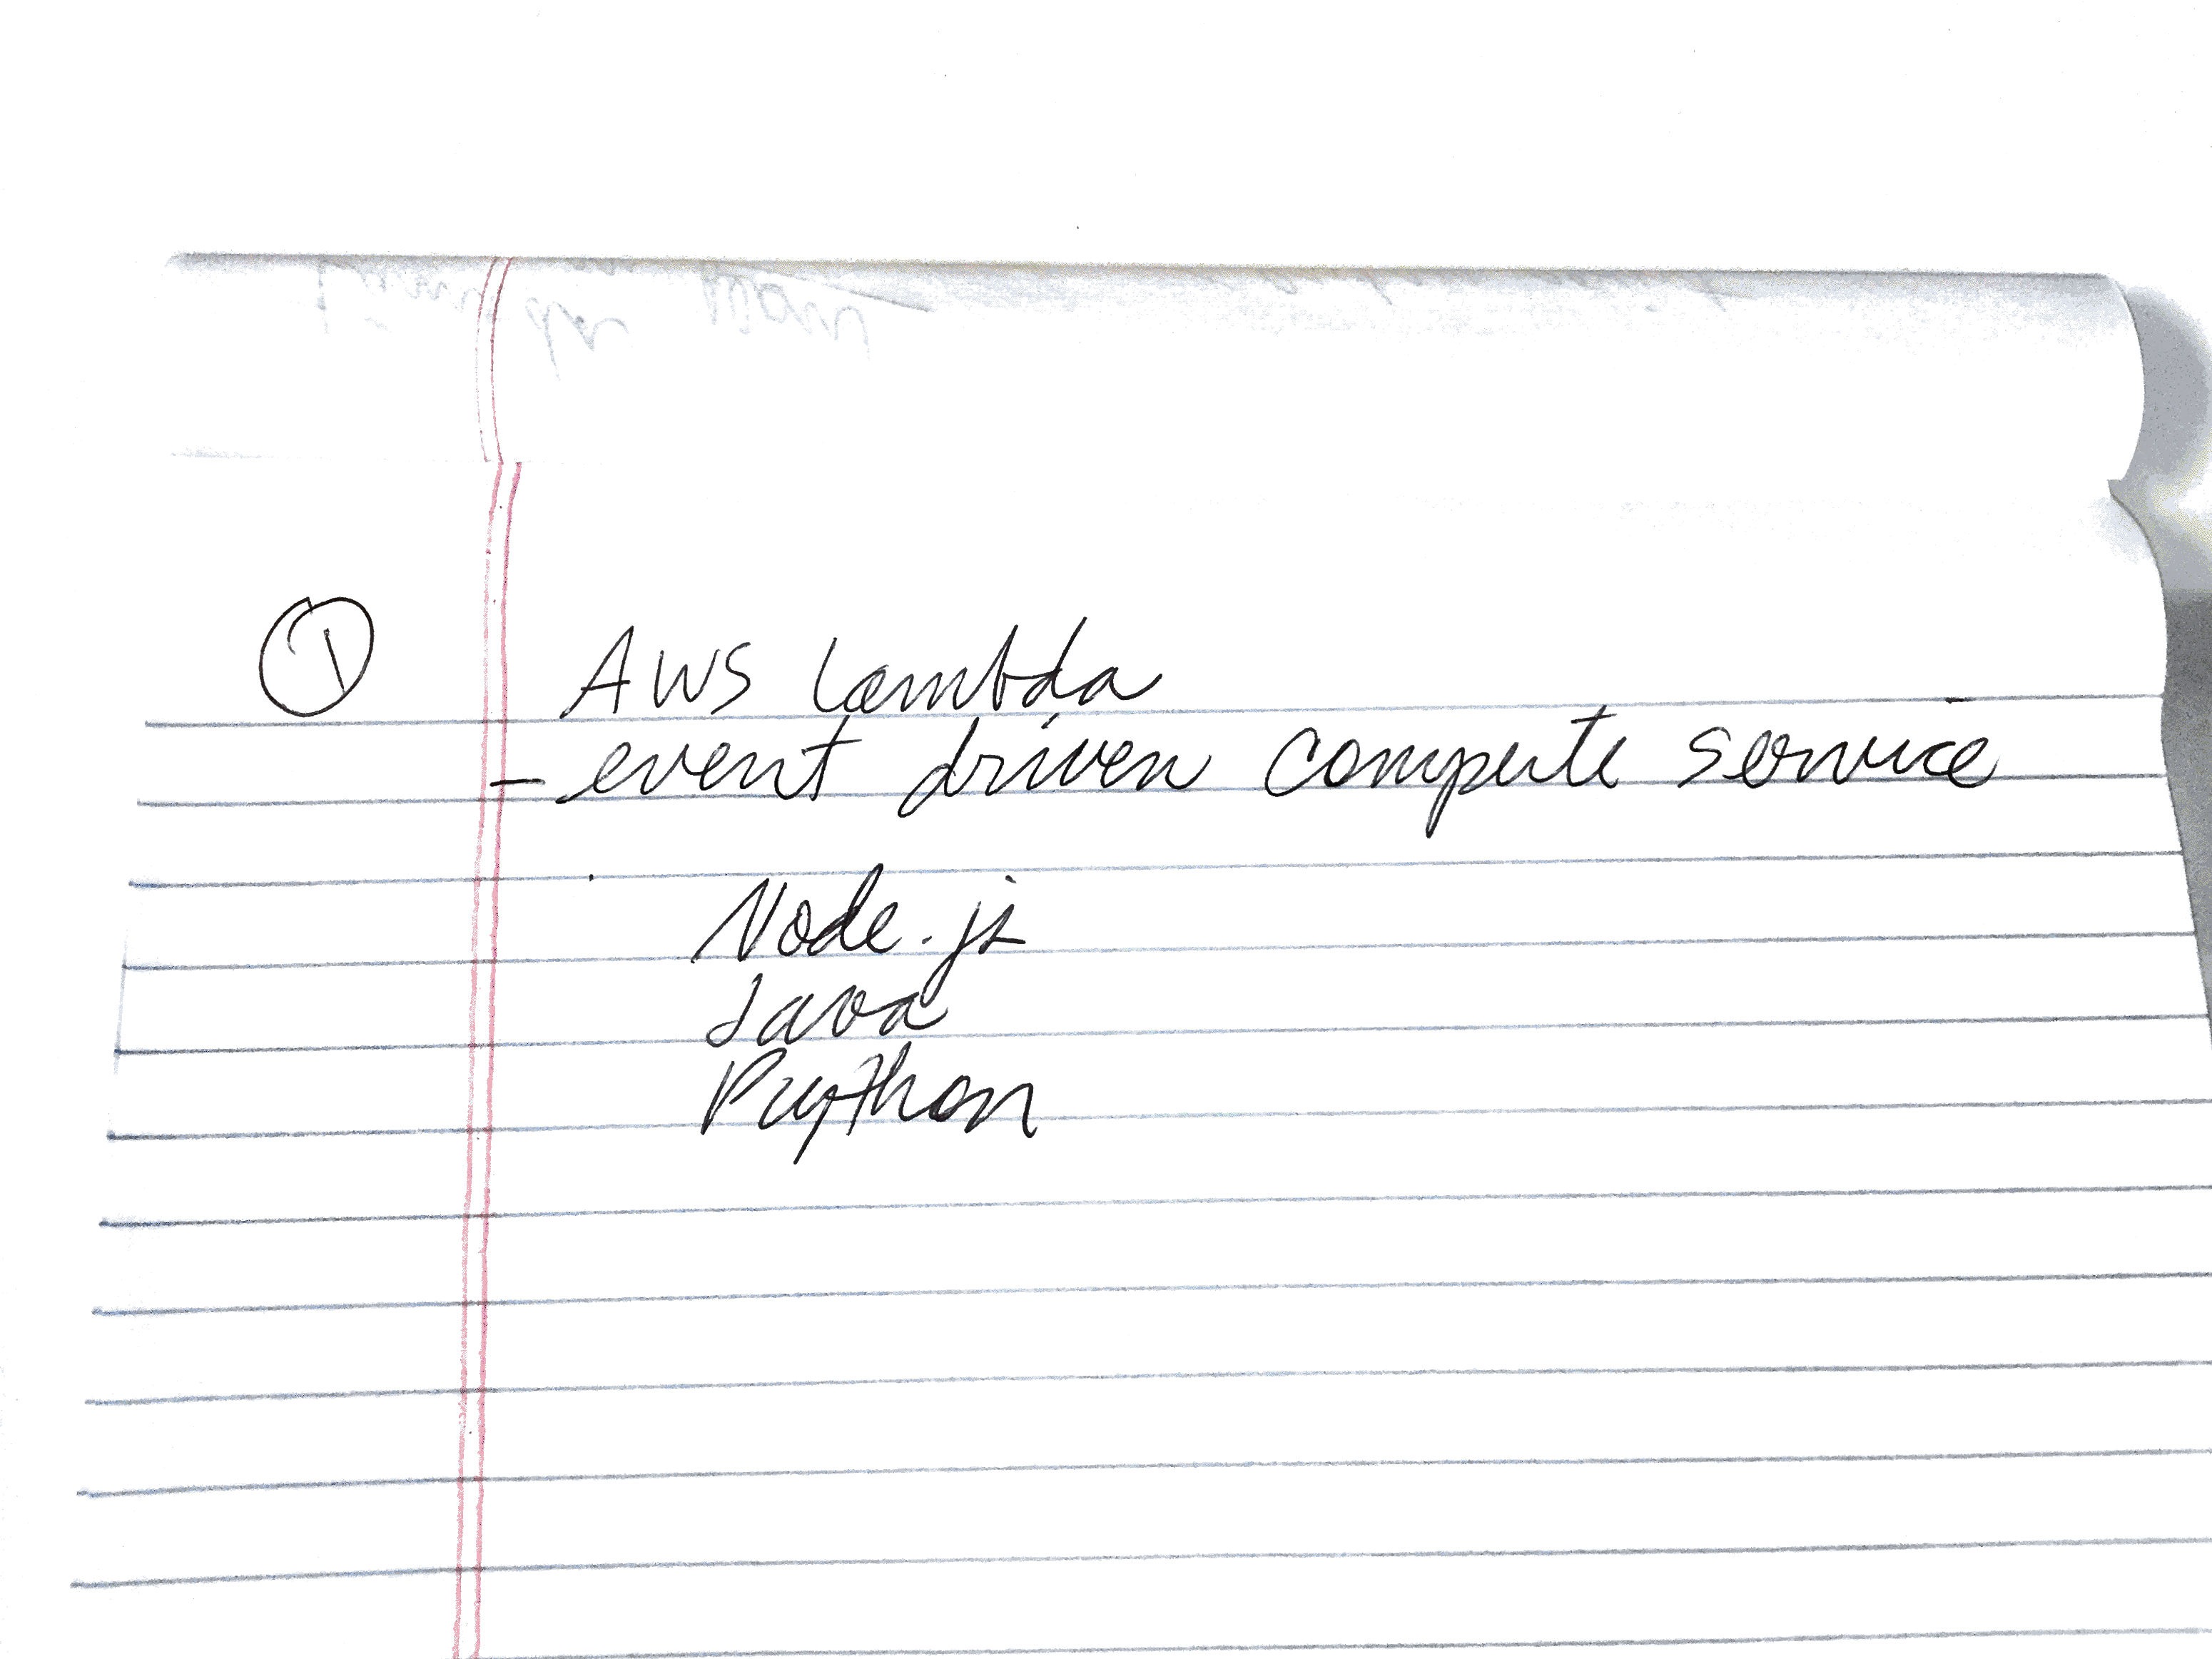 ①
AWS Lambda
- event driven compute service
Node.js
Java
Python